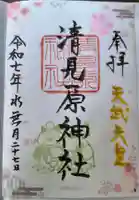 奉拝
天武天皇
清見原神社
令和七年水無月二十七日